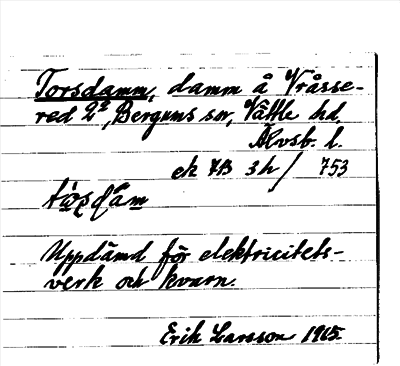 Torsdamm, damm å Vråsse-
red 2², Bergums sn, Vättle hd.
Älvsb. l.
ek 7B 3h / 753
Uppdämd för elektricitets-
verk och kvarn.
Erik Larsson 1965.